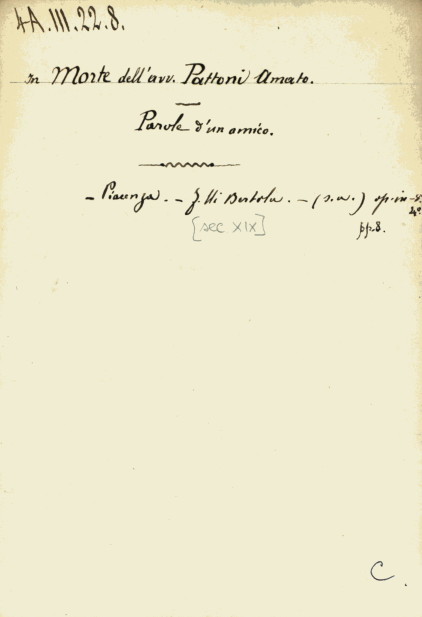 4A.III.22.8.
In Morte dell'avv. Pattoni Amato.
Parole d'un amico.
- Piacenza. - F.lli Bertola. - (s.a.) op. in-8.
4º
[sec XIX]
pp.8.
C